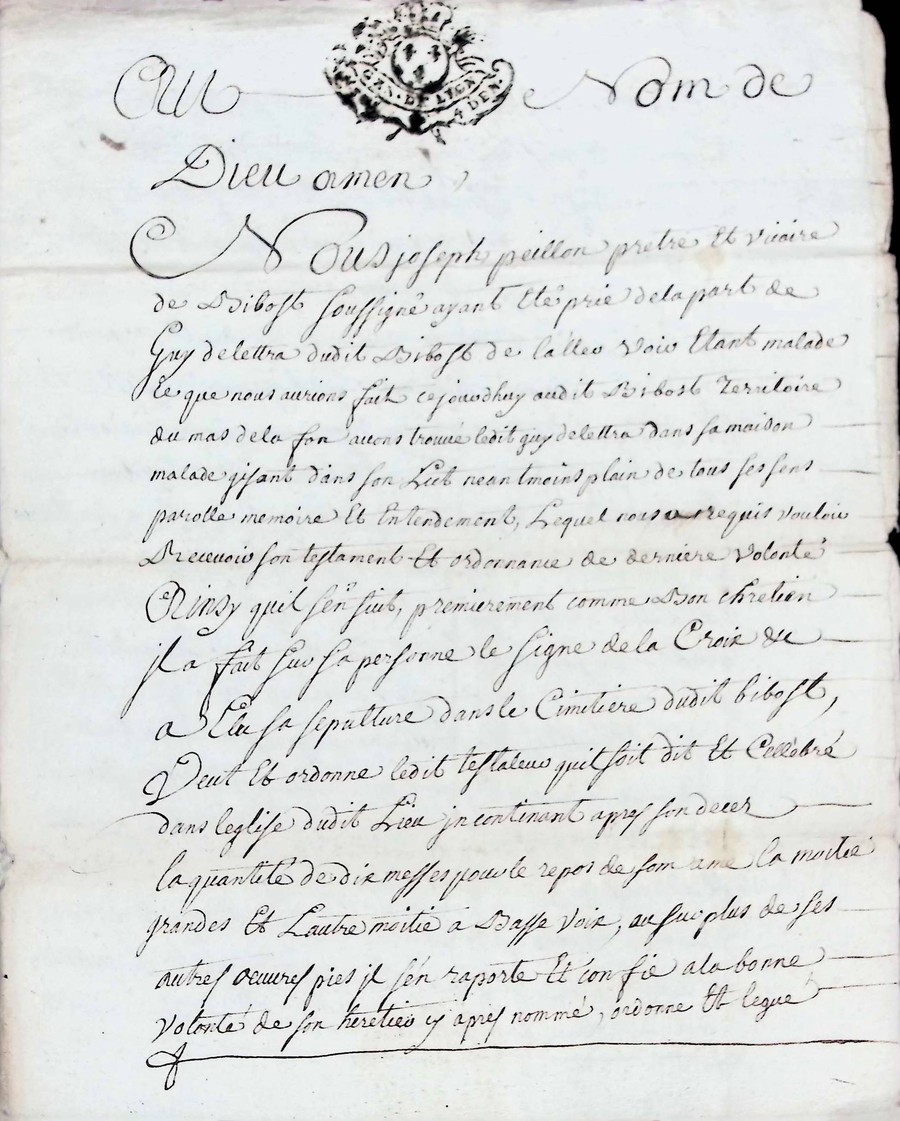 Au Nom de
GEN. DE LYON
4 DEN.
Dieu amen
Nous joseph peillon pretre Et vicaire
de Bibost soussigné ayant Eté prie dela part de
Guy delettra dudit Bibost de laller voir Etant malade
Ce que nous aurions fait cejourdhuy audit Bibost Territoire
du mas dela fon avons trouvé ledit guy delettra dans sa maison
malade gisant dans son Lict neantmoins plain de tous ses sens
parolle memoire Et Entendement, Lequel nous a requis vouloir
Recevoir son testament Et ordonnance de derniere volonté
Ainsy quil sen suit, premierement comme Bon chretien
jl a fait sur sa personne le signe de la Croix
a Elu sa sepulture dans le Cimitiere dudit bibost,
Veut Et ordonne ledit testateur quil soit dit Et Cellébré
dans leglise dudit Lieu jncontinant apres son decez
la quantité de dix messes pour le repos de som ame la moitié
grandes Et Lautre moitié à Basse voix, au surplus de ses
autres oeuvres pies jl sén raporte Et confie a la bonne
volonté de son héretier cy apres nommé, ordonne Et legue